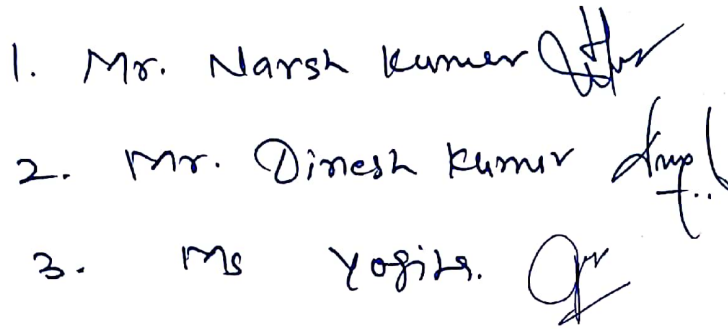 1. Mr. Narsh Kumar
2. Mr. Dinesh Kumar
3. Ms Yogita.